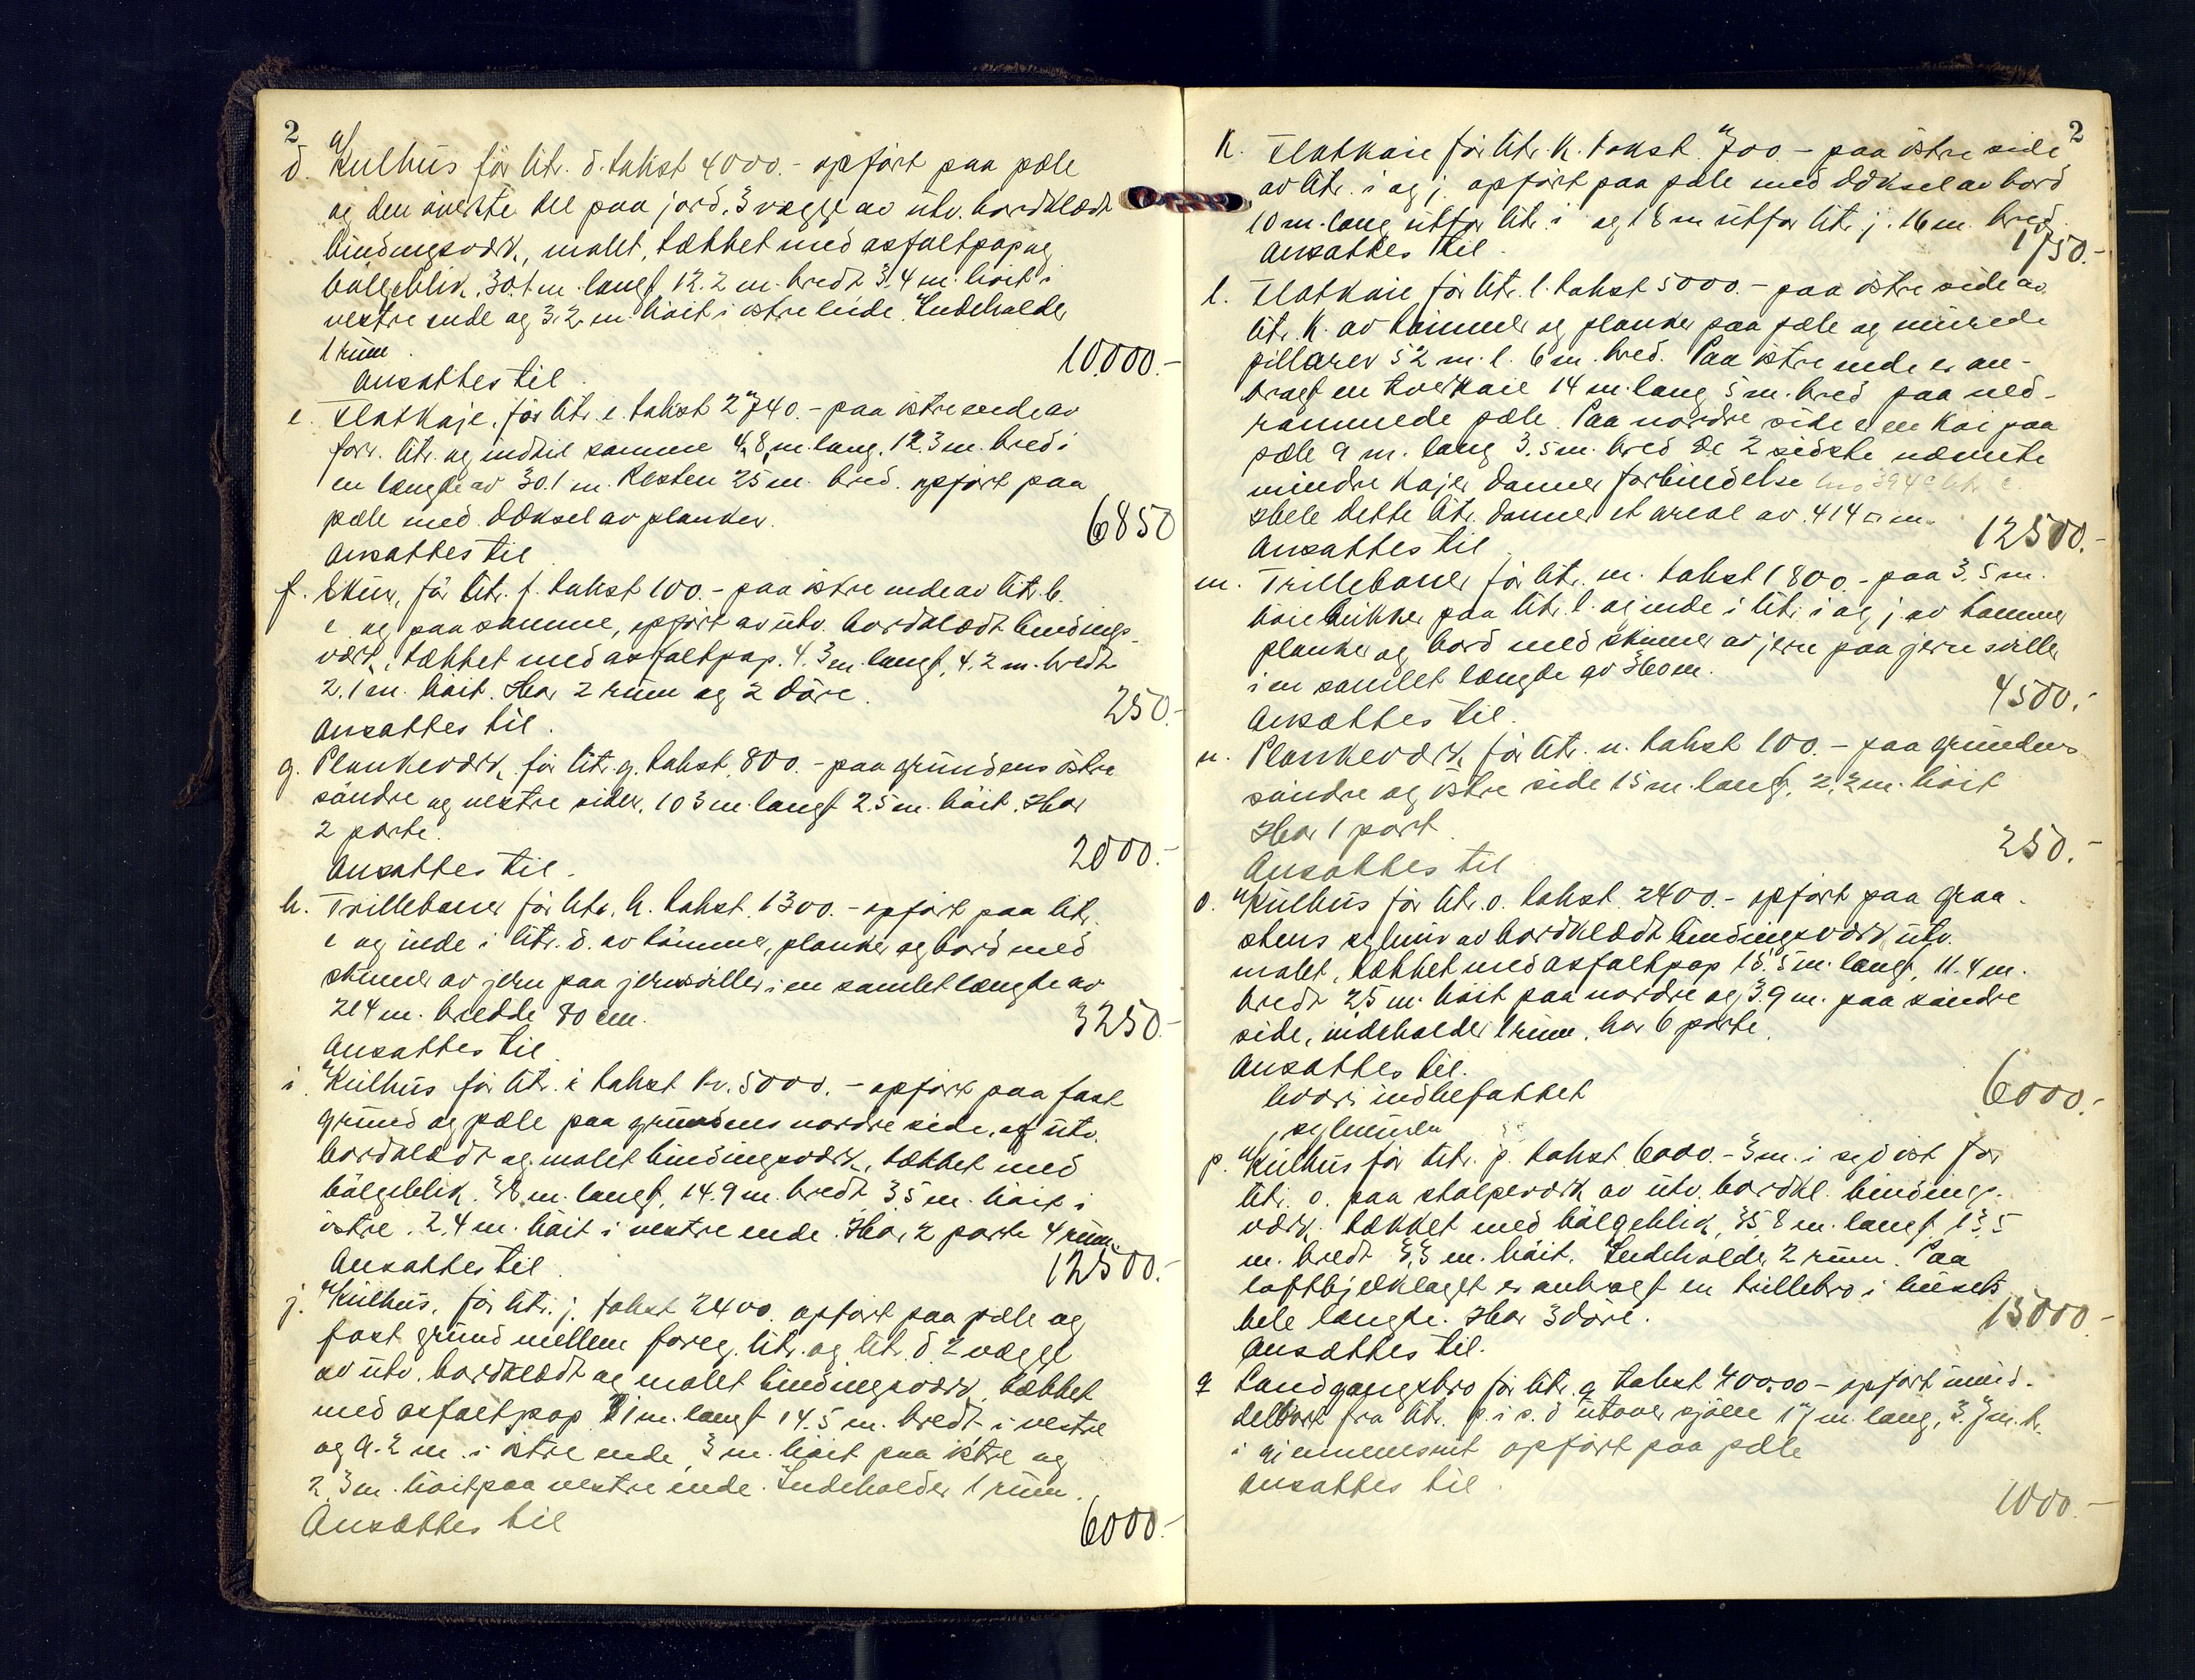 2
d. Kulhus för litr. d. takst 4000.- opført paa pæle
og den överste del paa jord. 3 vægge av utv. bordklædt
bindingsverk, malet, tækket med asfaltpap og
bølgeblik, 30.1 m. langt, 12.2 m. bredt 3.4 m. høit i
vestre ende og 3.2 m. høit i østre ende. Indeholder
1 rum.
Ansættes til 10.000.-
e. Flatkaje, för litr. e. takst 2740.- paa østre ende av
forr. litr. og indtil samme 4,8 m. lang, 12.3 m. bred i
en længde av 30.1 m. Resten 25 m. bred. opført paa
pæle med dæksel av planker.
Ansættes til 6850
f. Skur, för litr. f. takst 100.- paa østre ende av litr. b.
e og paa samme, opført av utv. bordklædt bindings-
værk, tækket med asfaltpap. 4.3 m. langt, 4.2 m. bredt
2.1 m. høit. Har 2 rum og 2 døre.
Ansættes til. 250.-
g. Plankeværk, för litr. g. takst 800.- paa grundens østre
søndre og vestre sider, 103 m. langt 2.5 m. høit. Har
2 porte.
Ansættes til. 2000.-
h. Trillebaner för litr. h. takst 1300.- opført paa litr.
e og inde i litr. d. av tömmer, planker og bord med
skinner av jern paa jernsviller i en samlet længde av
214 m. bredde 80 cm.
Ansættes til 3250.-
i. Kulhus för litr. i takst kr. 5000.- opført paa fast
grund og pæle paa grundens nordre side, af utv.
bordklædt og malet bindingsværk, tækket med
bølgeblik. 38 m. langt, 14.9 m. bredt 3.5 m. høit i
østre. 2.4 m. høit i vestre ende. Har 2 porte 4 rum.
Ansættes til 12500.-
j. Kulhus, för litr. j. takst 2400. opført paa pæle og
fast grund mellem foreg. litr. og litr. d. 2 vægge
av utv. bordklædt og malet bindingsværk, tækket
med asfaltpap 31 m. langt 14.5 m. bredt i vestre
og 9.2 m. i østre ende, 3 m. høit paa østre og
2,3 m. høit paa vestre ende. Indeholder 1 rum.
Ansættes til 6000.-
2
k. Flatkaie för litr. k. takst 700.- paa østre side
av litr. i og j. opført paa pæle med dæksel av bord
10 m. lang utfor litr. i og 18 m utfor litr. j. 16 m. bred.
Ansættes til. 1750.-
l. Flatkaie för litr. l. takst 5000.- paa østre side av
litr. k. av tømmer og planker paa pæle og murede
pillarer 52 m. l. 6 m. bred. Paa østre ende er an-
bragt en tverkaie 14 m. lang 5 m. bred paa ned-
rammede pæle. Paa nordre side er en kai paa
pæle 9 m. lang 3.5 m. bred De 2 sidste nævnte
mindre kajer danner forbindelse
Hele dette litr. danner et areal av 414 □ m.
Ansættes til 12500.-
m. Trillebaner för litr. m. takst 1800.- paa 3,5 m.
høie bukker paa litr. l. og inde i litr. i og j. av tømmer
planker og bord med skinner av jern paa jernsviller
i en samlet længde av 360 m.
Ansættes til. 4500.-
n. Plankeværk, för litr. n. takst 100.- paa grundens
søndre og østre side 15 m. langt, 2,2 m. høit
Har 1 port.
Ansættes til 250.-
o. Kulhus för litr. o. takst 2400.- opført paa graa-
stens sylmur av bordklædt bindingsværk utv.
malet, tækket med asfaltpap 15.5 m. langt, 11.4 m.
bredt 2,5 m. høit paa nordre og 3.9 m. paa søndre
side, indeholder 1 rum, har 6 porte.
Ansættes til.
hvori indbefattet 6000.-
sylmuren
p. Kulhus för litr. p. takst 6000.- 3 m. i syd øst for
litr. o. paa stolpeværk av utv. bordkl. bindings-
værk, tækket med bølgeblik, 35.8 m. langt, 13,5
m. bredt 3,3 m. høit. Indeholder 2 rum. Paa
loftbjelklaget er anbragt en trillebro i husets
hele længde. Har 3 døre.
Ansættes til. 15000.-
q Landgangsbro för litr. q takst 400.00 - opført umid-
delbart fra litr. p. i s. ö utover sjøen 17 m. lang, 3.7 m. b.
i gjennemsnit opført paa pæle
Ansættes til. 1000.-